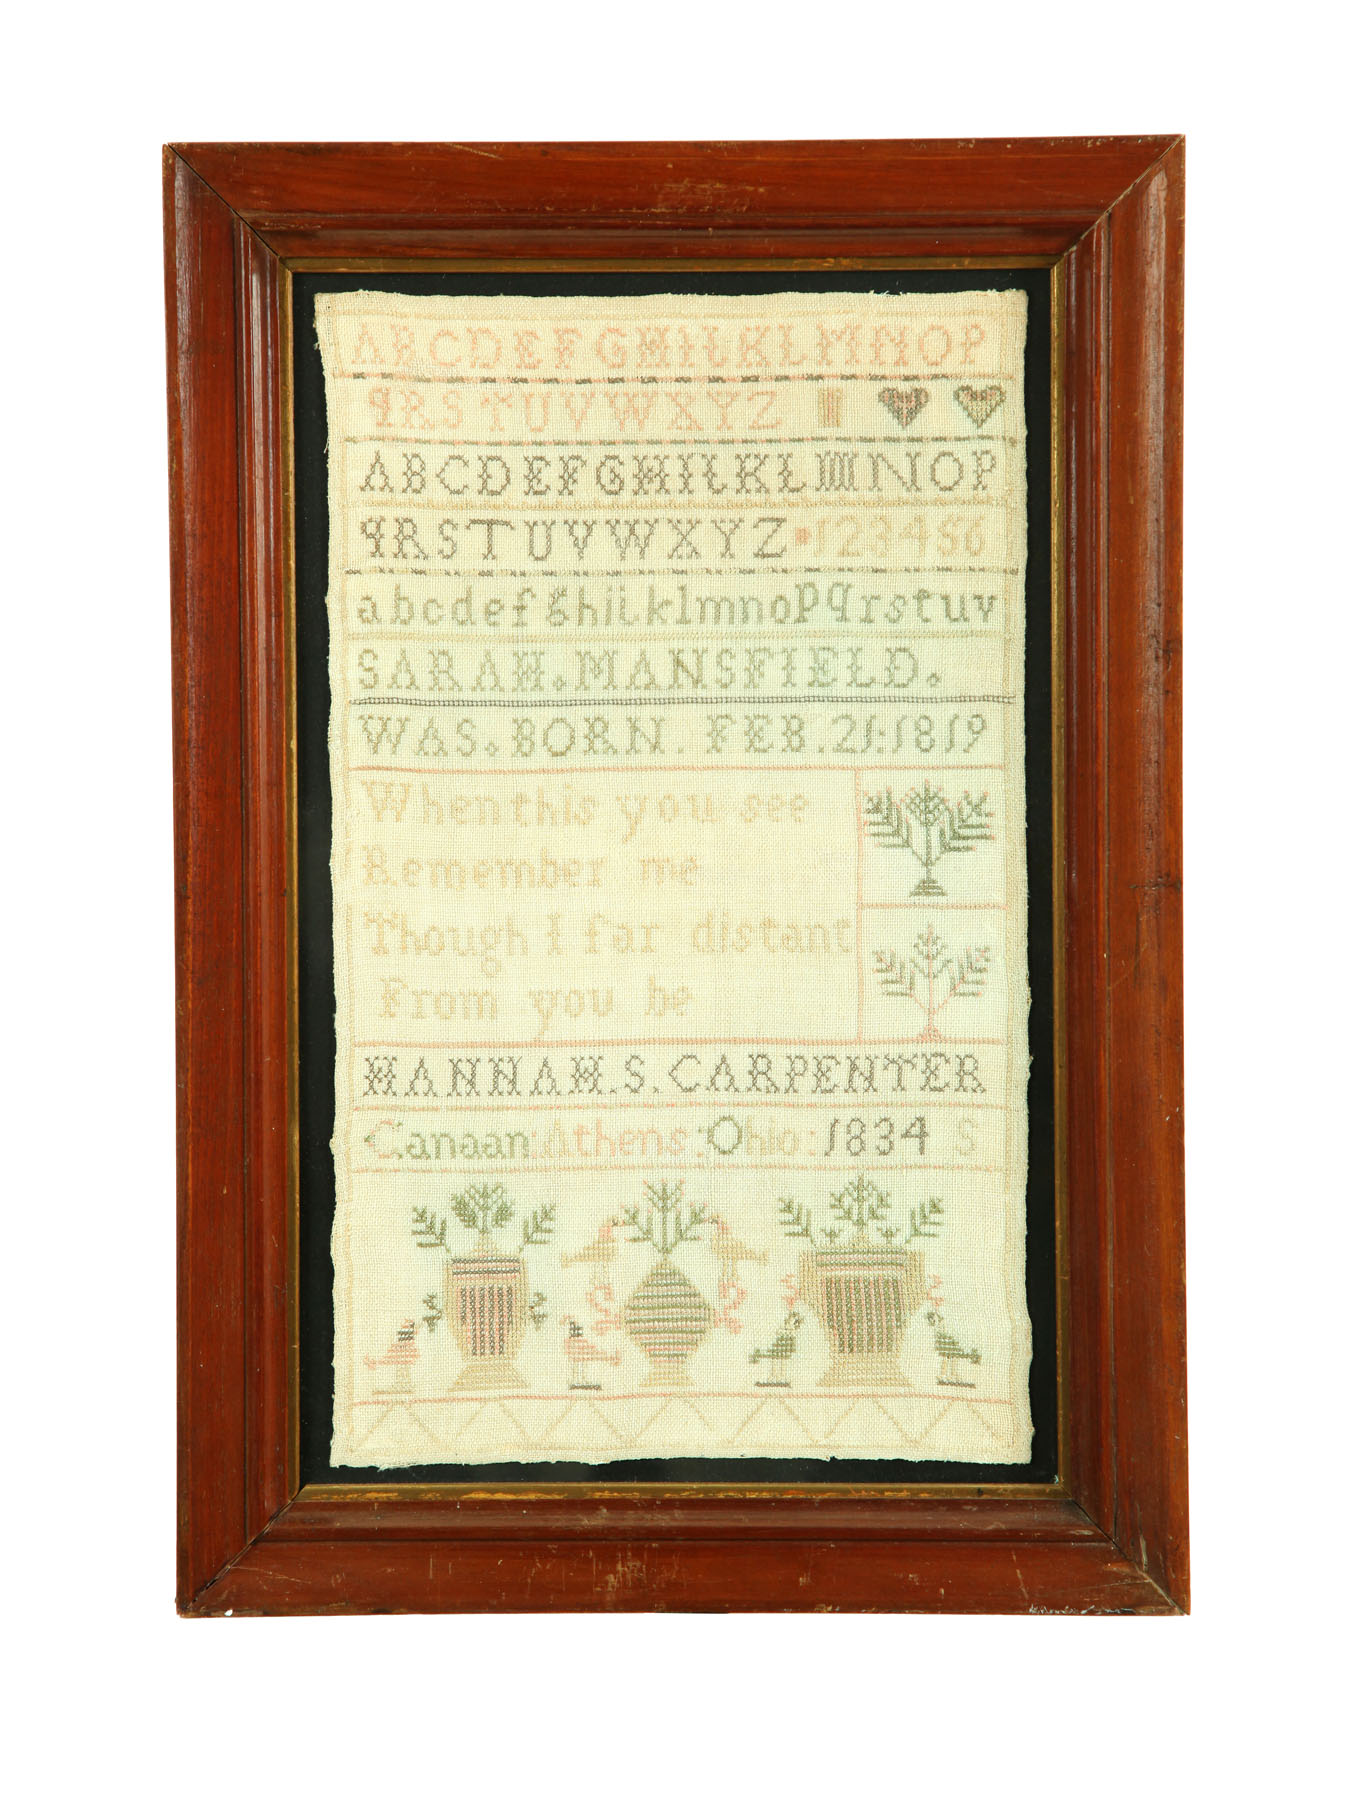 ABCDEFGHIJKLMNOP
qRSTUVWXYZ
ABCDEFGHIJKLMNOP
qRSTUVWXYZ 123456
abcdefghijklmnopqrstuv
SARAH. MANSFIELD.
WAS. BORN. FEB. 21:1819
When this you see
Remember me
Though I far distant
From you be
HANNAH. S. CARPENTER
Canaan: Athens: Ohio: 1834 S